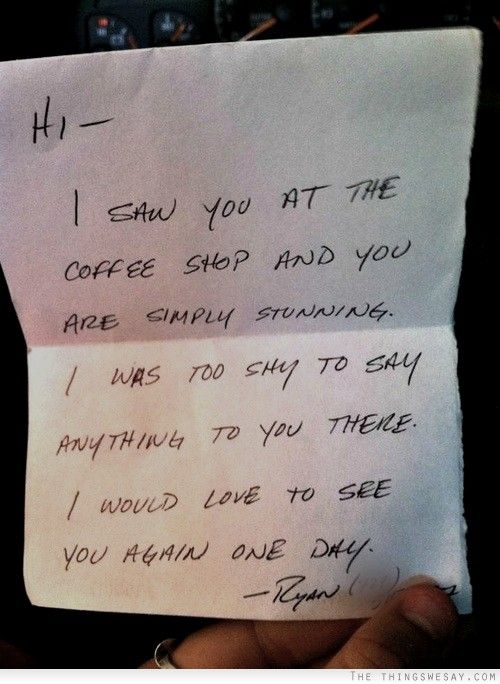 HI —
I SAW YOU AT THE
COFFEE SHOP AND YOU
ARE SIMPLY STUNNING.
I WAS TOO SHY TO SAY
ANYTHING TO YOU THERE.
I WOULD LOVE TO SEE
YOU AGAIN ONE DAY.
— RYAN
THE THINGSWESAY.COM